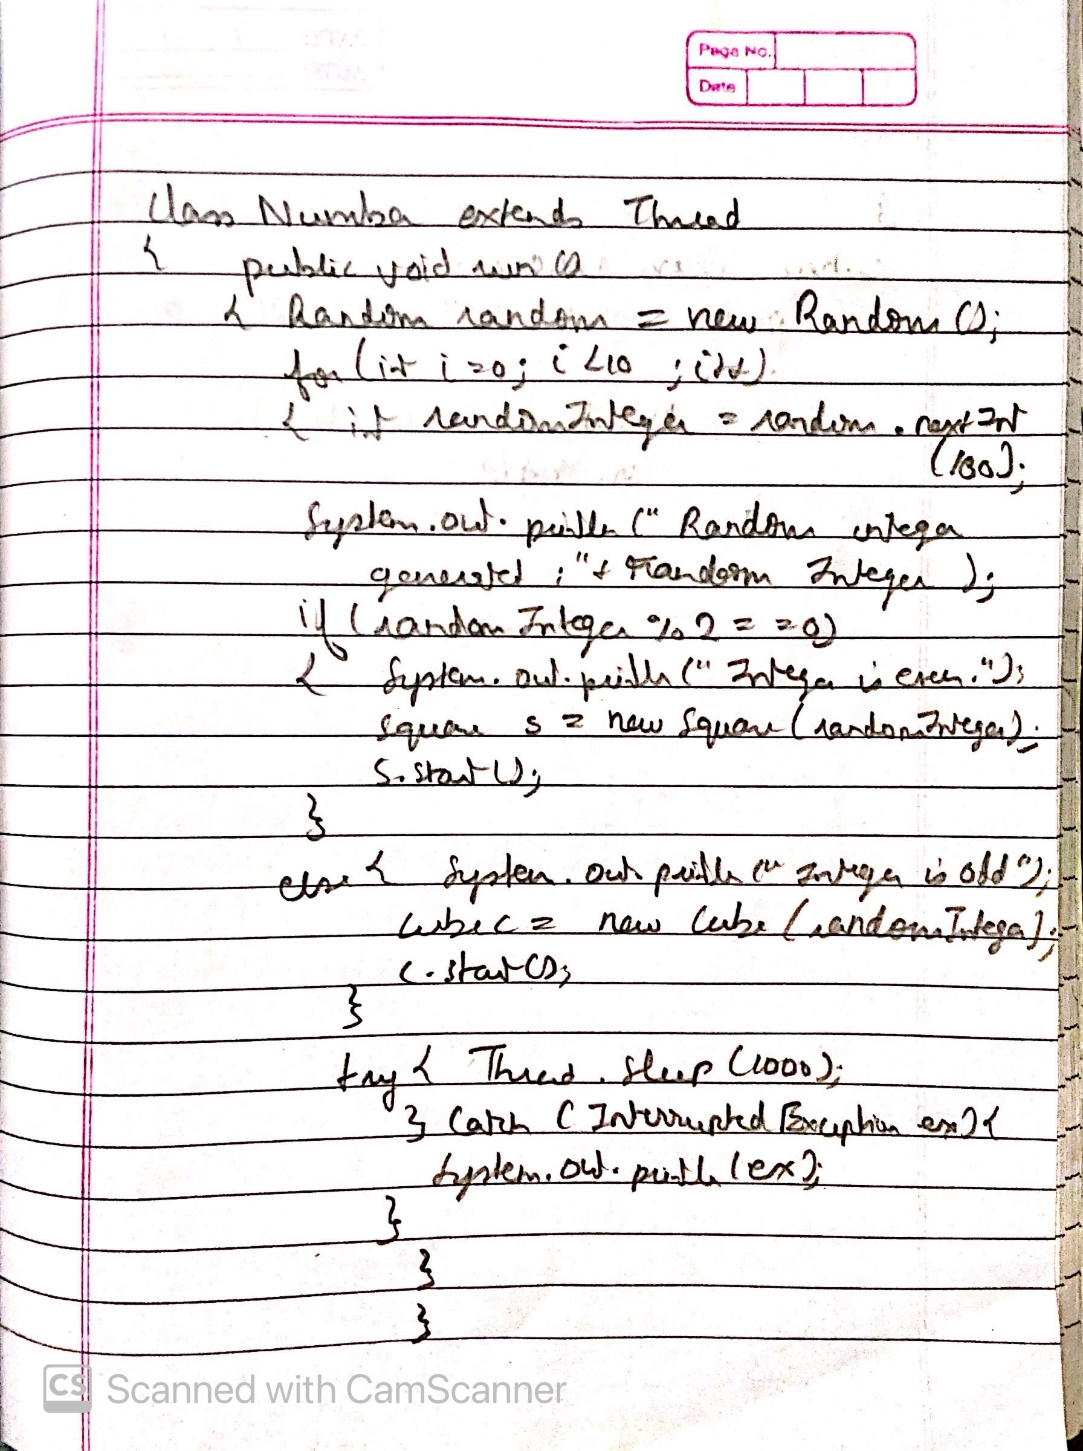 Page No.
Date
class Number extends Thread
{ public void run ()
{ Random random = new Random ();
for (int i = 0; i < 10 ; i++)
{ int randomInteger = random . nextInt
(100);
System.out. println (" Random integer
generated : " + random Integer );
if (random Integer % 2 = = 0)
{ System. out. println (" Integer is even.");
square s = new Square (randomInteger);
s.start ();
}
else { System. out println (" Integer is odd");
Cube c = new Cube (randomInteger);
c. start ();
}
try { Thread . sleep (1000);
} catch ( Interrupted Exception ex) {
System. out. println (ex);
}
}
}
CS Scanned with CamScanner